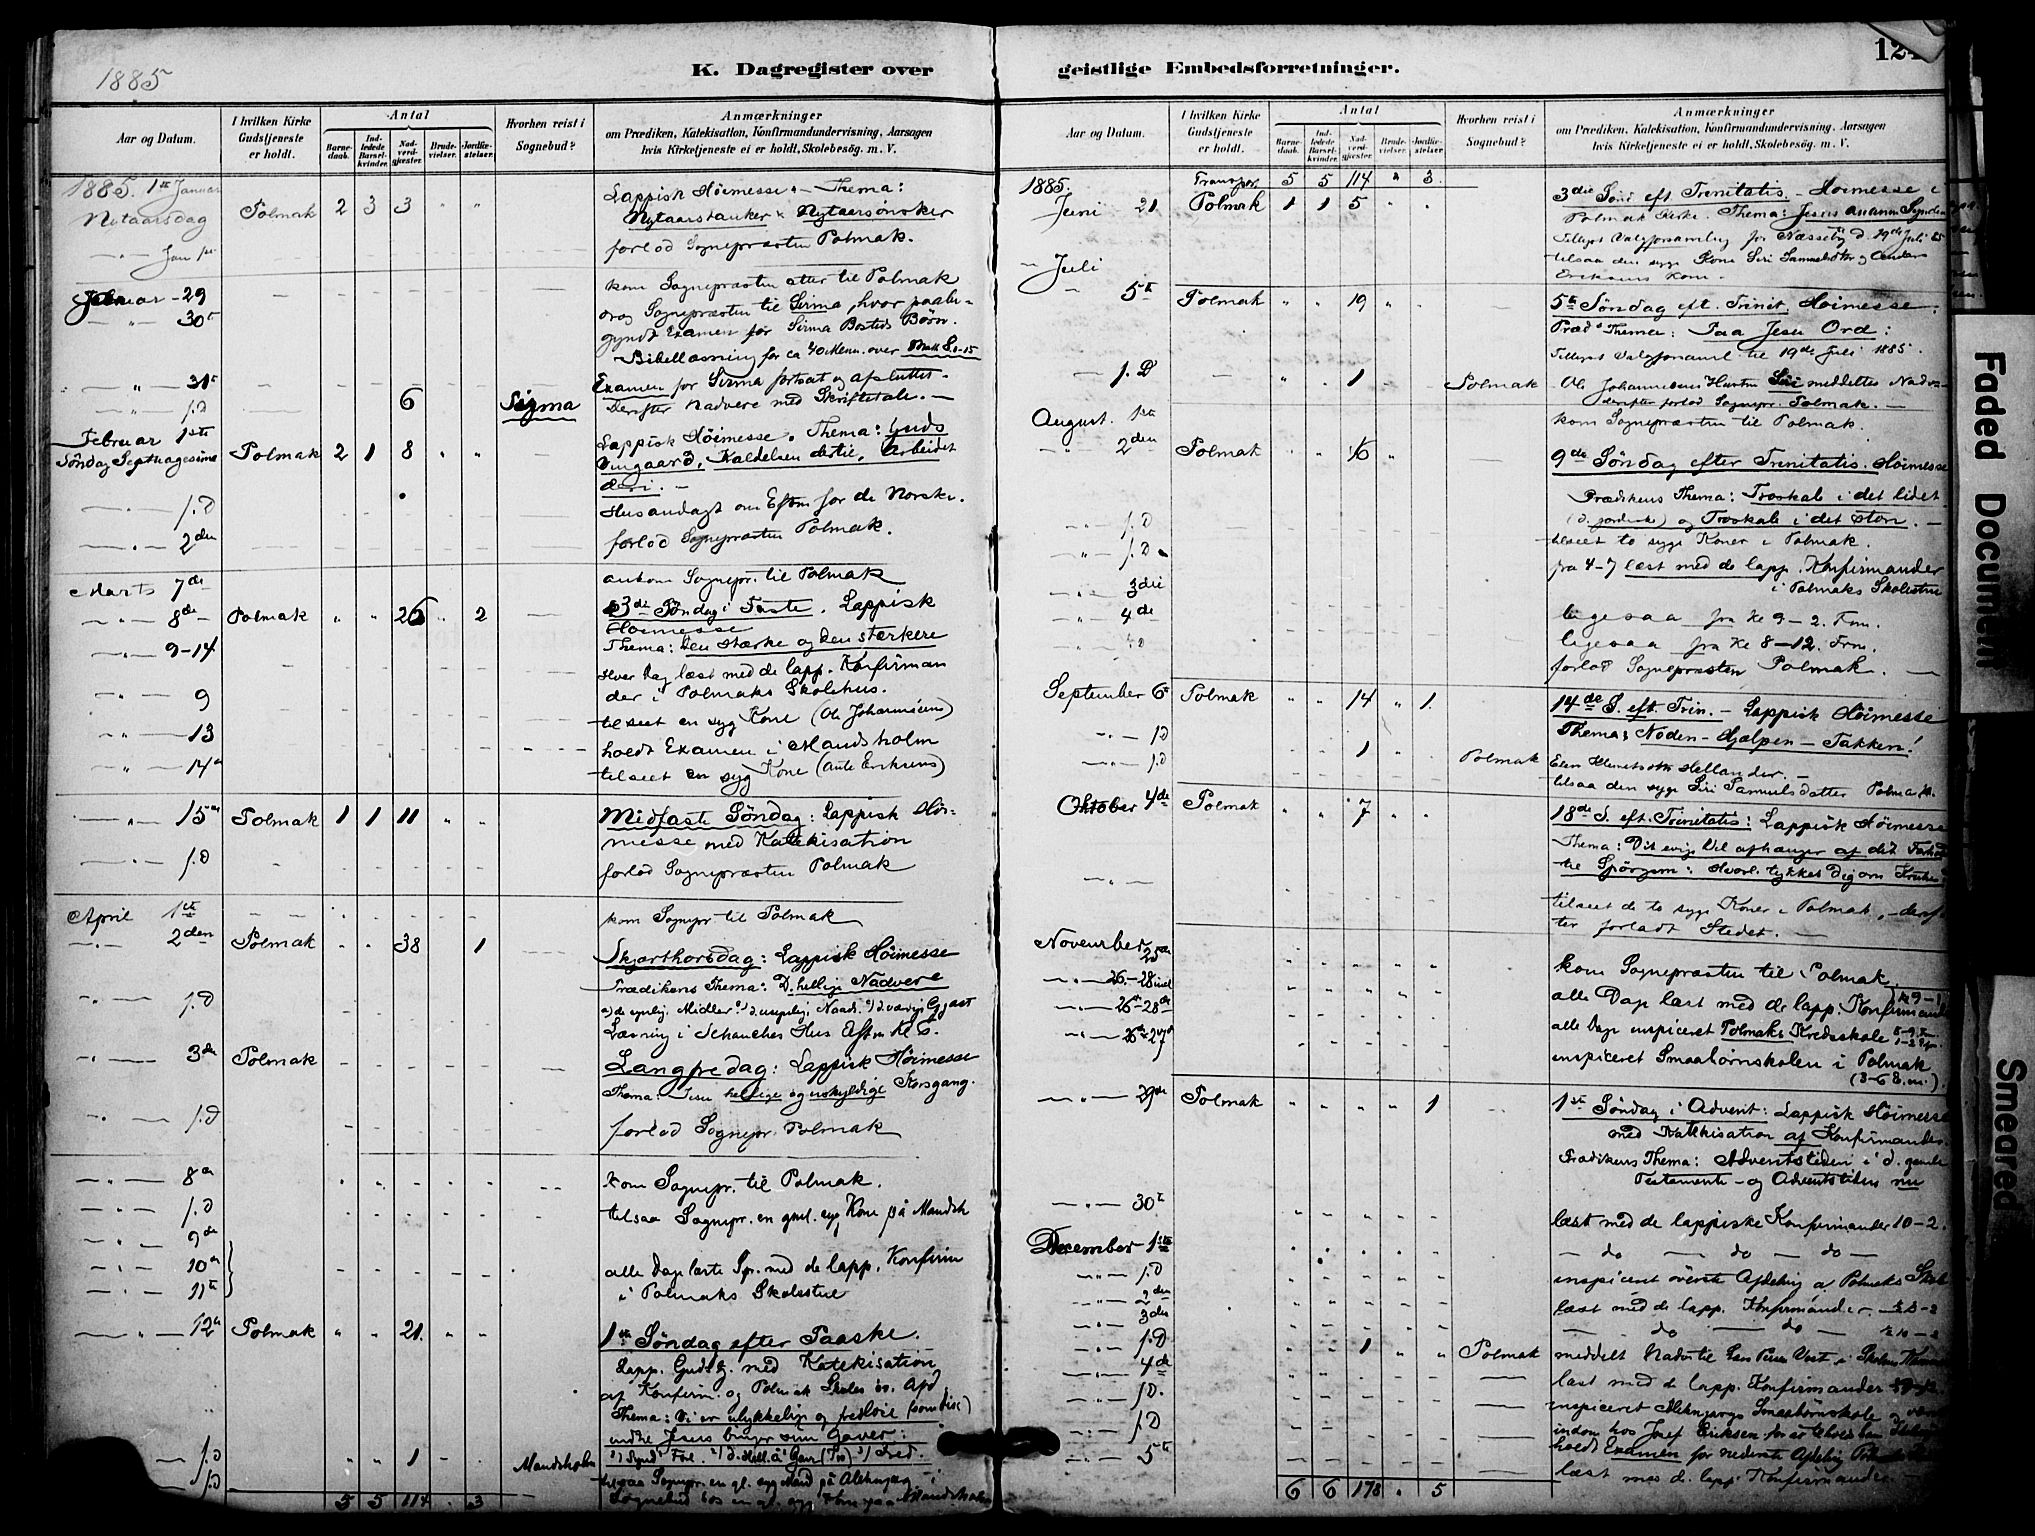 1885
K. Dagregister over
Aar og Datum.
I hvilken Kirke Gudstjeneste er holdt.
Antal
Barne-daab.
Ind-ledede Barsel-kvinder.
Nad-verd-gjester.
Brude-vielser.
Jordfæ-stelser.
Hvorhen reist i Sognebud?
Anmærkninger
om Prædiken, Katekisation, Konfirmandundervisning, Aarsagen
hvis Kirketjeneste ei er holdt, Skolebesøg. m. V.
1885. 1ste Januar
Nytaarsdag Polmak 2 3 3 " "
Lappisk Høimesse. - Thema:
Nytaarstanker & Nytaarsønsker
forlod Sognepræsten Polmak.
Januar - 29 kom Sognepræsten atter til Polmak
30te drog Sognepræsten til Sirma, hvor paabe-
gyndt Examen for Sirma Bosteds Børn.
Bibellæsning for ca 40 Menn. over
31te Examen for Sirma fortsat og afsluttet.
s.D 6 Sirma Derefter Nadvere med Skriftetale. -
Februar 1ste
Søndag Septuagesima Polmak 2 1 8 " " Lappisk Høimesse. Thema: Guds
Vingaard, Kaldelsen dertil, Arbeidet
deri. -
s.D Husandagt om Eftm for de Norske.
2den forlod Sognepræsten Polmak.
Marts 7de ankom Sognepr. til Polmak
8de Polmak " " 26 " 2 3de Søndag i Faste. Lappisk
Høimesse
Thema: Den stærke og den stærkere
9-14 Hver Dag læst med de lapp. Konfirman
der i Polmaks Skolehus.
9 tilseet en syg Kone (Ole Johannsens)
13 holdt Examen i Mandsholm
14de tilseet en syg Kone (Ante Eriksens)
15de Polmak 1 1 11 " " Midfaste Søndag: Lappisk Høi-
messe med Katekisation
s.D forlod Sognepræsten Polmak
April 1ste kom Sognepr til Polmak
2den Polmak " " 38 1 Skjærthorsdag: Lappisk Høimesse
Prædikens Thema: D. hellige Nadvere
s.D Læsning i Schanches Hus Eftm Kl 6.
3de Polmak Langfredag: Lappisk Høimesse
Thema: Jesu hellige og uskyldige Korsgang.
s.D forlod Sognepr. Polmak
8de kom Sognepr. til Polmak.
s.D tilsaa Sognepr. en gml. syg Kone på Mandsh
9de
10de alle Dage læste Spr. med de lapp. Konfirm
11te i Polmaks Skolestue
12te Polmak " " 21. " " 1ste Søndag efter Paaske.
Lapp. Gudstj. med Katekisation
af Konfirm. og Polmak Skoles øv. Afd
Thema: Vi er ulykkelige og fredløse
indtil Jesus bringer sine Gaver:
s.D " " 1 Mandsholm
s.D tilsaa Sognepr. en gl. syg Mand på
Sognebud hos en gl. syg Kone paa Mandsholm
5 5 114 . 3
geistlige Embedsforretninger.
Aar og Datum.
I hvilken Kirke Gudstjeneste er holdt.
Antal
Barne-daab.
Ind-ledede Barsel-kvinder.
Nad-verd-gjester.
Brude-vielser.
Jordfæ-stelser.
Hvorhen reist i Sognebud?
Anmærkninger
om Prædiken, Katekisation, Konfirmandundervisning, Aarsagen
hvis Kirketjeneste ei er holdt, Skolebesøg. m. V.
1885. Transport 5 5 114 " 3.
Juni 21 Polmak 1 1 5 " . 3die Sønd eft Trinitatis. - Høimesse i
Polmak Kirke. Thema: Jesus annam Syndere
Tillyst Valgforsamling for Næsseby d. 19de Juli 85
tilsaa den syge Kone Siri Samuelsdtr og Anders
Eriksens Kone.
Juli
5te Polmak " " 19 " 5te Søndag eft. Trinit. Høimesse.
Præd. Thema: Paa Jesu Ord:
Tillyst Valgforsaml til 19de Juli 1885.
s.D 1 Polmak Ole Johannesens Hustru Siri meddeltes Nadve-
derefter forlod Sognepr. Polmak. -
August. 1ste kom Sognepræsten til Polmak.
2den Polmak " " 16 " 9de Søndag efter Trinitatis. Høimesse
Prædikens Thema: Troskab i det lidet
og Troskab i det store. -
s.D tilseet to syge Koner i Polmak.
s.D fra 4-7 læst med de lapp. Konfirmander
i Polmaks Skolestue
3die ligesaa fra Kl 9-2. Fm.
4de ligesaa fra Kl 8-12. Fm.
s.D forlod Sognepræsten Polmak.
September 6te Polmak " " 14 " 1. 14de S. eft. Trin. - Lappisk Høimesse
s.D Thema: Nøden - Hjælpen - Takken!
s.D 1 Polmak
tilsaa den syge Siri Samuelsdatter
Oktober 4de Polmak " " 7 18de S. eft. Trinitatis: Lappisk Høimesse
Thema: Dit evige Vel afhænger af dit Forhold
til Spørgsm: Hvorl. tykkes Dig om Kristus
tilseet de to syge Koner i Polmak, - deref
ter forladt Stedet.
November 25de kom Sognepræsten til Polmak.
26-28 incl alle Dage læst med de lapp. Konfirmand
26de-28de alle Dage inspiceret Polmaks Kredsskole
26de-27de inspiceret Smaabørnskolen i Polmak
(3-6 E.m.)
29de Polmak " " " " 1 1ste Søndag i Advent: Lappisk Høimesse
med Katekisation af Konfirmander.
Prædikens Thema: Adventstiden i d. gamle
Testamente - og Adventstiden nu
30te læst med de lappiske Konfirmander 10-2.
December 1ste do do do
s.D inspiceret øverste Afdeling af Polmaks Skole
2den læst med de lapp. Konfirmander
3die do do
s.D 1 Polmak meddelt Nadv til
4de læst med d. lapp. Konfirmander
s.D. inspiceret Smaabørnskole og
s.D
5te holdt Examen for nederste Afdeling
læst med d. lapp. Konfirmander
6 6 178 . 5
Faded Document
Smeared